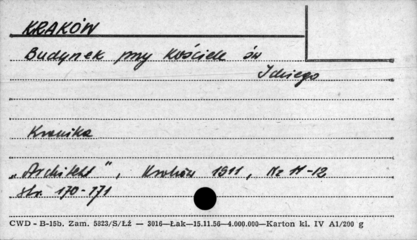 KRAKÓW
Budynek przy Kościele św
Idziego
Kronika
„Architekt", Kraków 1911, Nr 11-12
str. 170-171
CWD - B-15b. Zam. 5823/S/Łź — 3016—Łak—15.11.56—4.000.000—Karton kl. IV A1/200 g